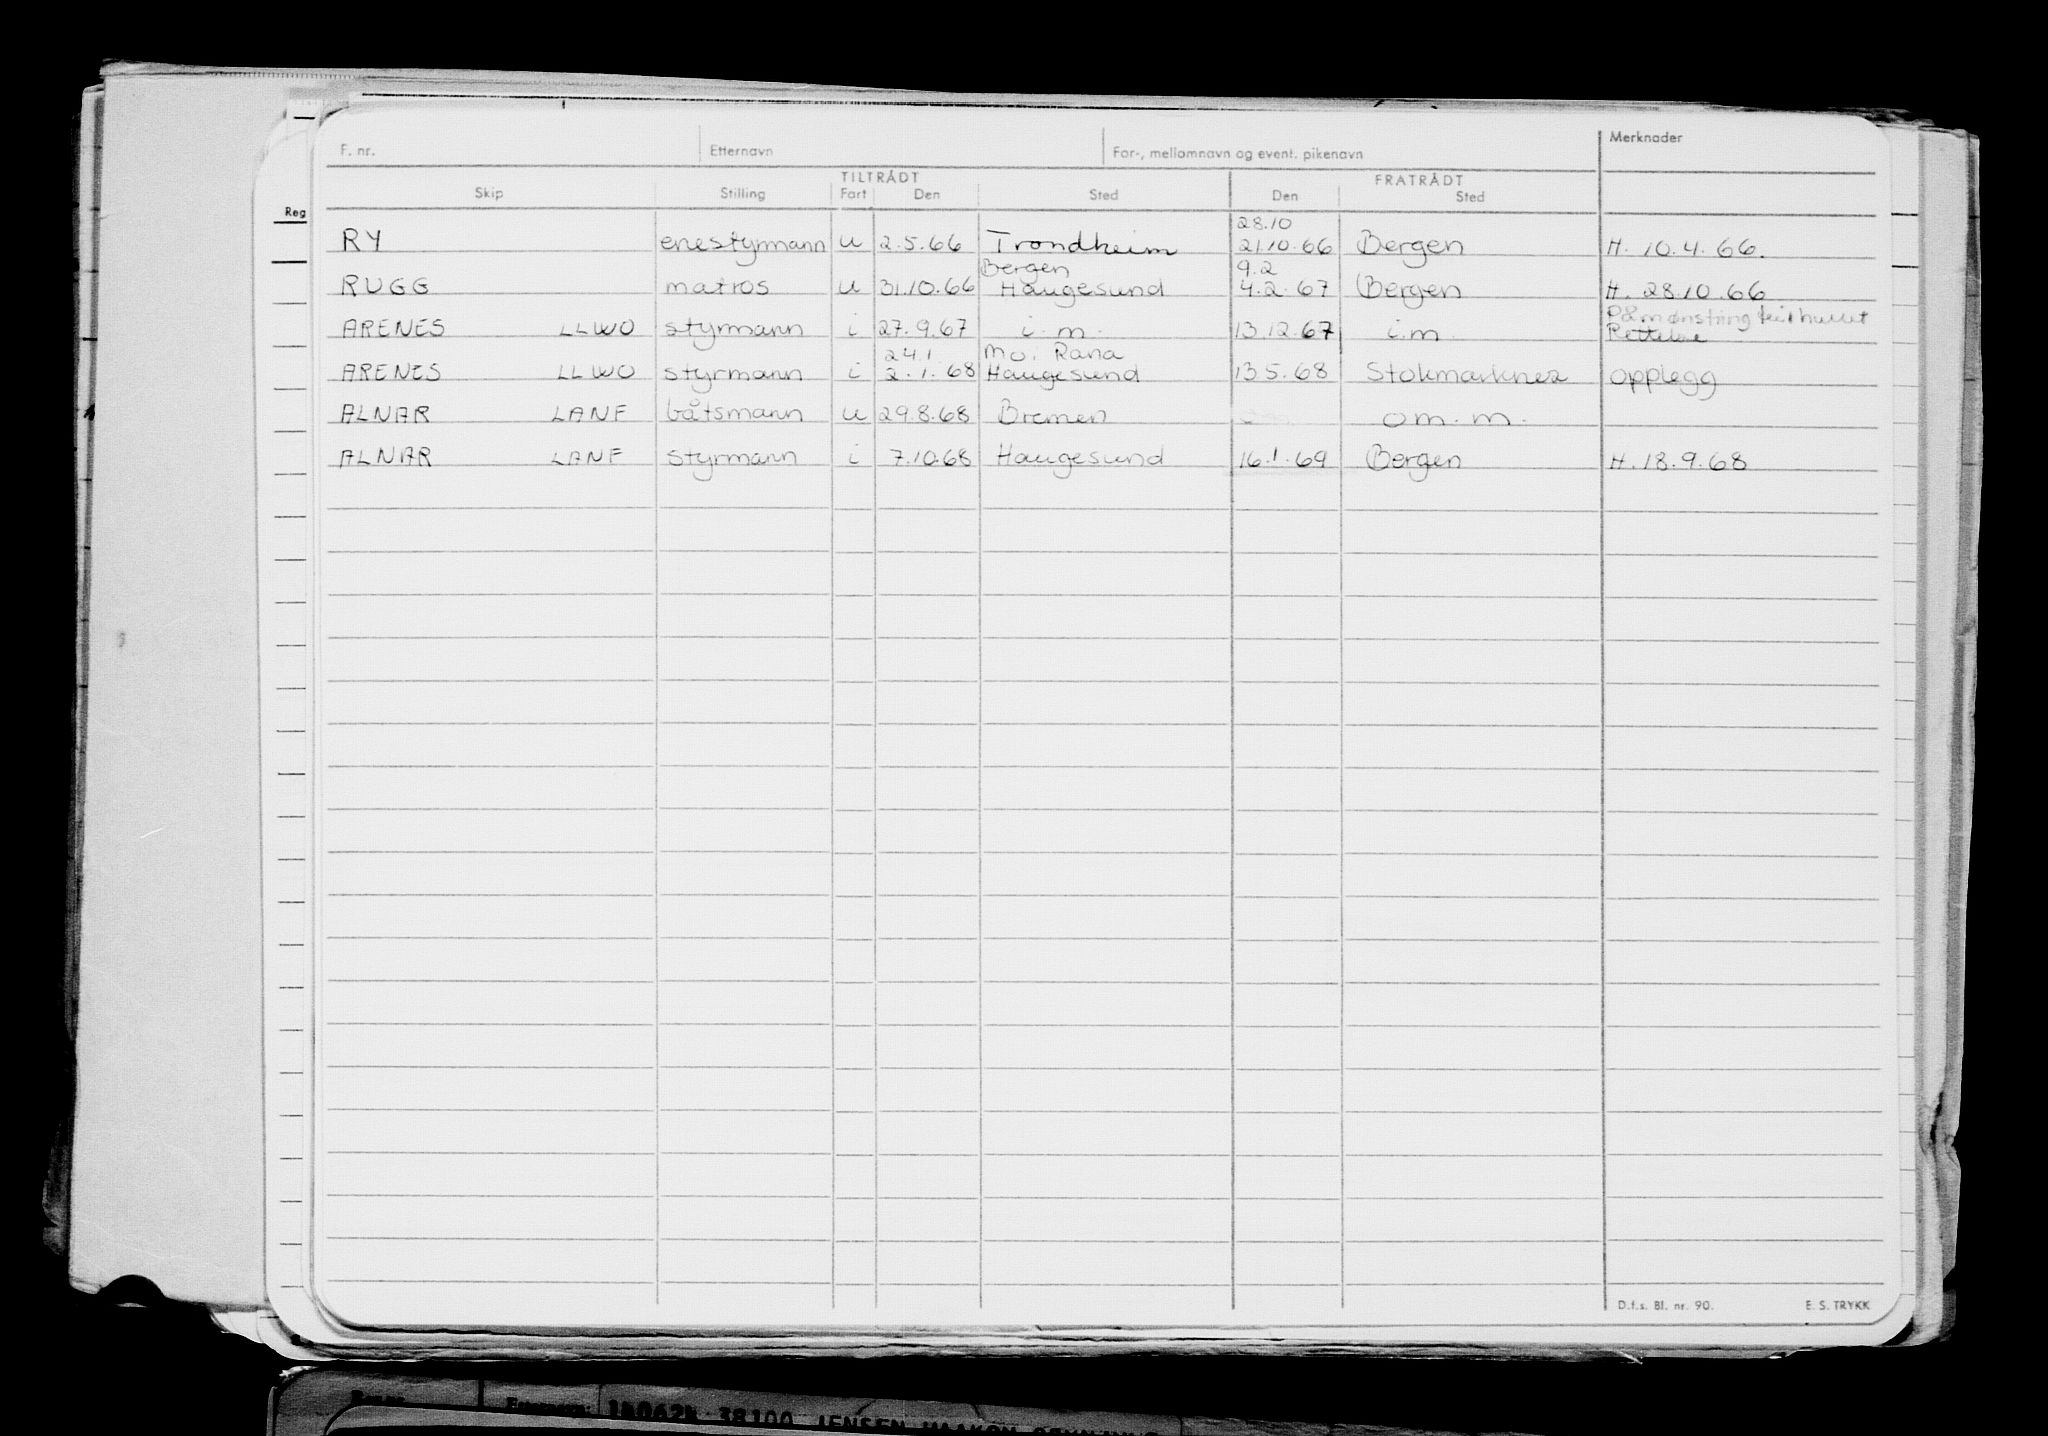 F. nr. Etternavn For-, mellomnavn og event. pikenavn Merknader
TILTRÅDT FRATRÅDT
Skip Stilling Fart Den Sted Den Sted
Reg
28.10
RY enestyrmann u 2.5.66 Trondheim 21.10.66 Bergen H. 10.4.66.
Bergen 9.2
RUGG matros u 31.10.66 Haugesund 4.2.67 Bergen H. 28.10.66
Påmønstring
ARENES LLWO styrmann i 27.9.67 i.m. 13.12.67 i.m.
24.1. Mo i Rana
ARENES LLWO styrmann i 2.1.68 Haugesund 13.5.68 Stokmarknes opplegg
ALNAR LANF båtsmann u 29.8.68 Bremen om.m.
ALNAR LANF styrmann i 7.10.68 Haugesund 16.1.69 Bergen H. 18.9.68
D.f.s. Bl. nr. 90. E. S. TRYKK
38100 JENSEN HAAKON